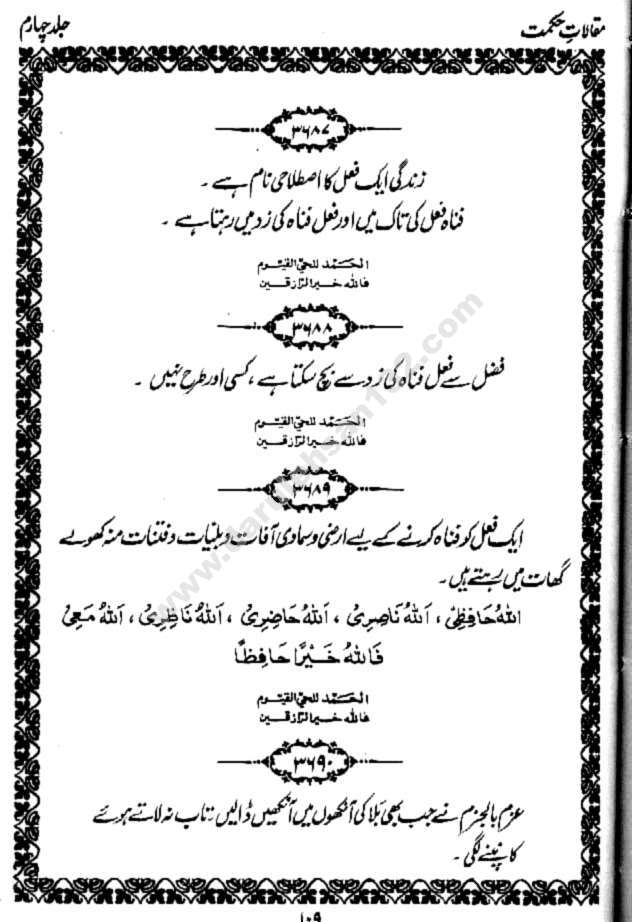 مقالاتِ حکمت
جلد چہارم
۳۶۸۷
زندگی ایک فعل کا اصطلاحی نام ہے ۔
فناہ فعل کی تاک میں اور فعل فناہ کی زد میں رہتا ہے ۔
الحَمد للحيّ القيّوم
فالله خير الرّازقين
۳۶۸۸
فضل سے فعل فناہ کی زد سے بچ سکتا ہے ، کسی اور طرح نہیں ۔
الحَمد للحيّ القيّوم
فالله خير الرّازقين
۳۶۸۹
ایک فعل کو فناہ کرنے کے لیے ارضی و سماوی آفات و بلیات و فتنات منہ کھولے
گھات میں رہتے ہیں ۔
اَللهُ حَافِظِيْ ، اَللهُ نَاصِرِيْ ، اَللهُ حَاضِرِيْ ، اَللهُ نَاظِرِيْ ، اَللهُ مَعِيْ
فَاللهُ خَيْرًا حَافِظًا
الحَمد للحيّ القيّوم
فالله خير الرّازقين
۳۶۹۰
عزم بالجزم نے جب بھی بَلا کی آنکھوں میں آنکھیں ڈالیں تاب نہ لاتے ہوئے
کانپنے لگی ۔
۱۰۹
www.darulehsan112.com